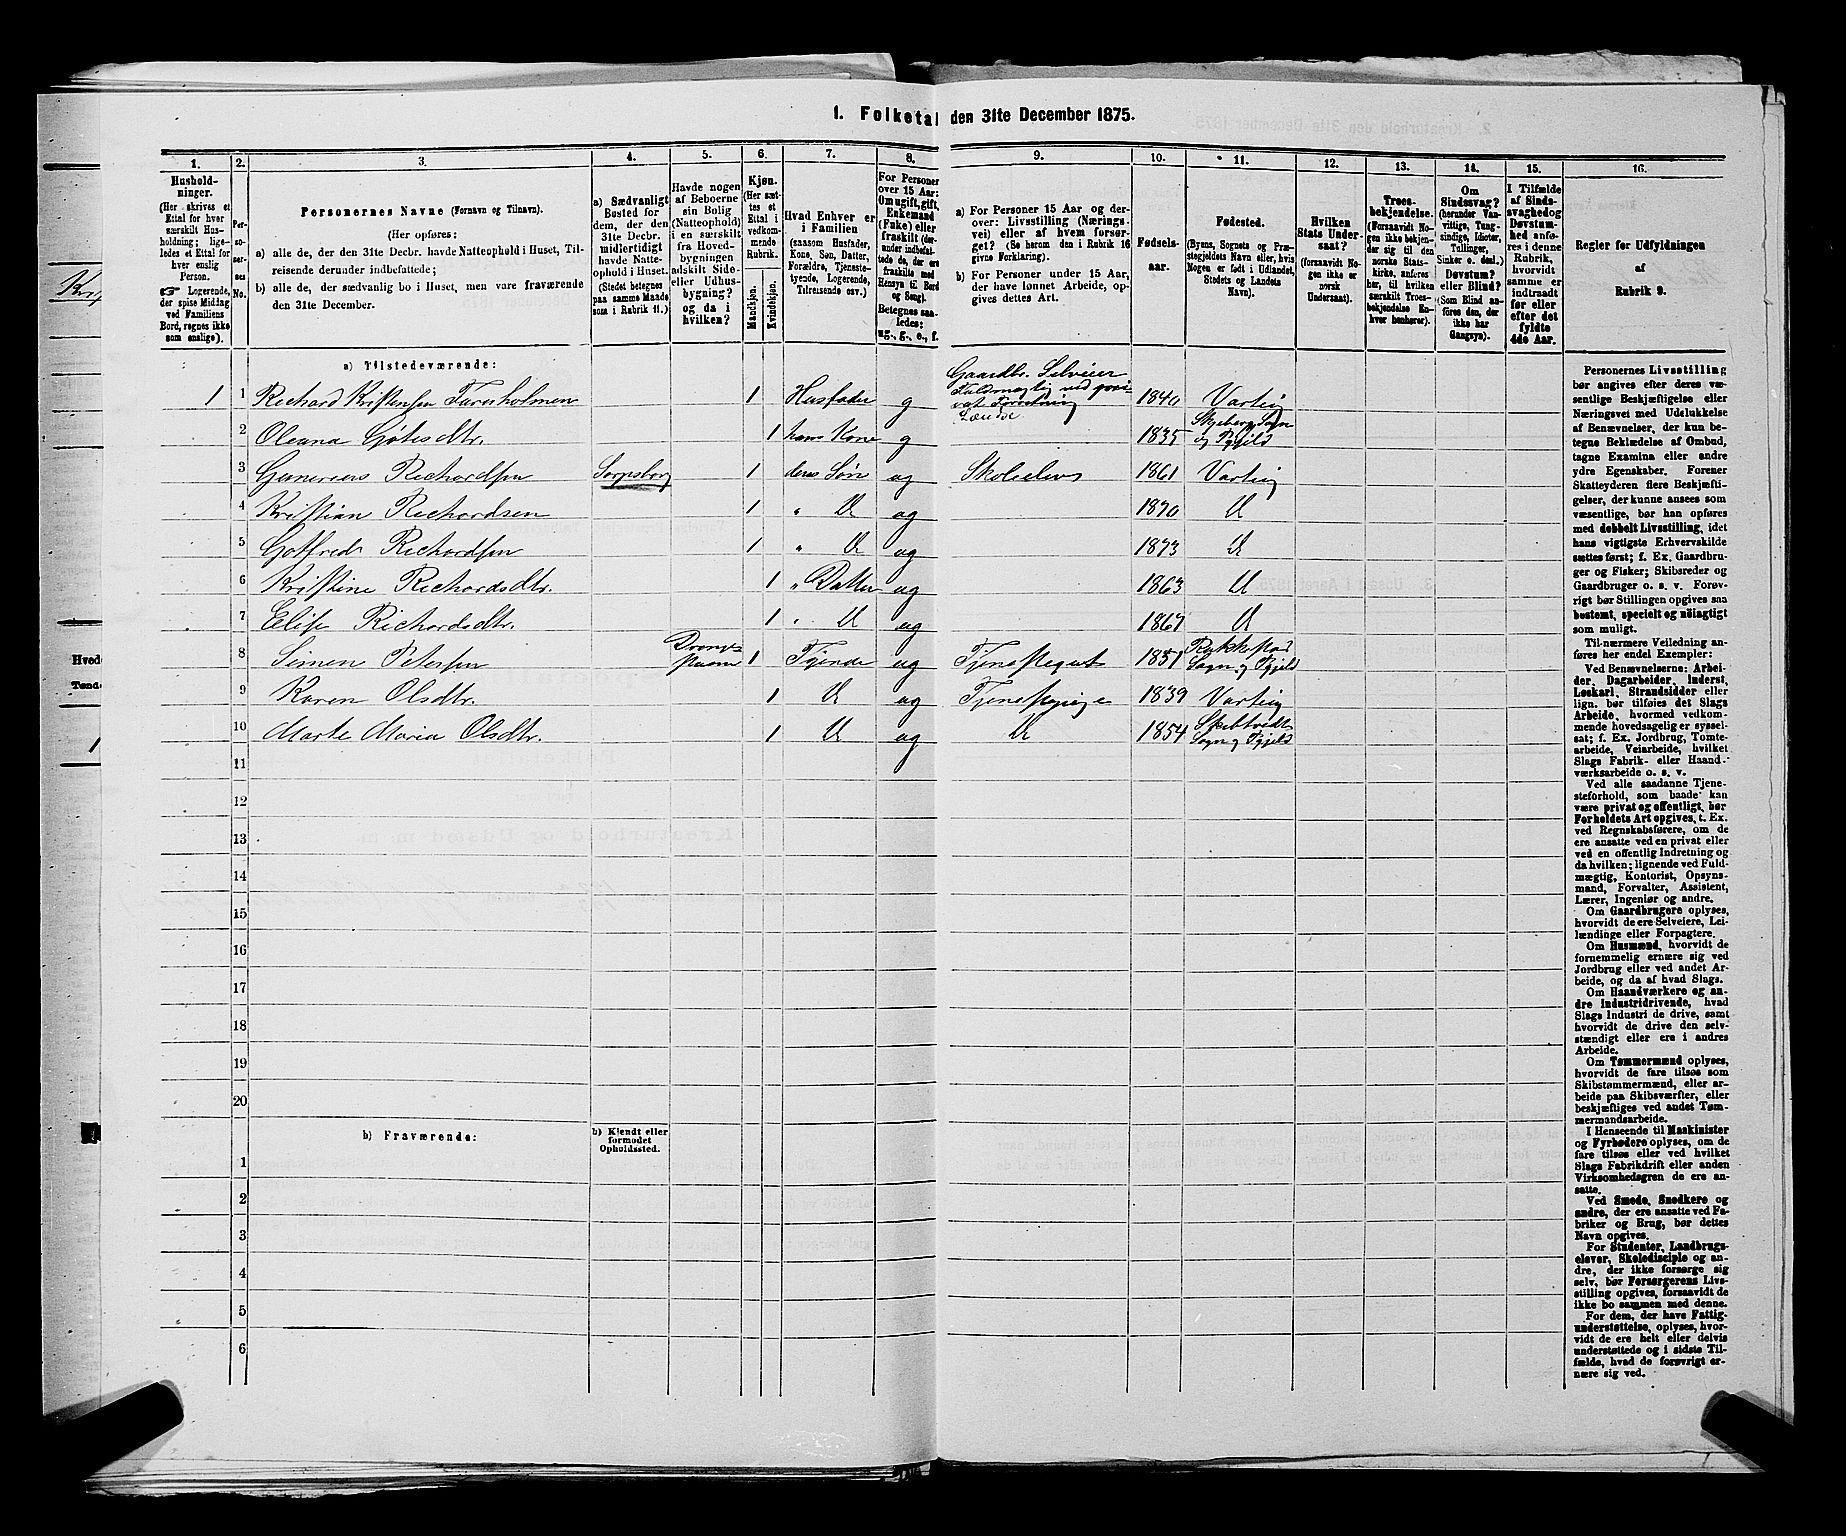 1. Folketal den 31te December 1875.
1.
Husholdninger.
(Her skrives et
Ettal for hver
særskilt Husholdning;
ligeledes et Ettal for
hver enslig
Person.
☞ Logerende,
der spise Middag
ved Familiens
Bord, regnes ikke
som enslige).
2.
Personernes
No.
3.
Personernes Navne (Fornavn og Tilnavn).
(Her opføres:
a) alle de, der den 31te Decbr. havde Natteophold i Huset, Tilreisende derunder indbefattede;
b) alle de, der sædvanlig bo i Huset, men vare fraværende
den 31te December.
4.
a) Sædvanligt
Bosted for
dem, der den
31te Decbr.
midlertidigt
havde Natteophold i Huset.
(Stedet betegnes
paa samme Maade
som i Rubrik 11.)
5.
Havde nogen
af Beboerne
sin Bolig
(Natteophold)
i en særskilt
fra Hovedbygningen
adskilt Side-
eller Udhusbygning?
og da i
hvilken?
6.
Kjøn.
(Her sættes et
Ettal i
vedkommende
Rubrik.
Mandkjøn.
Kvindekjøn.
7.
Hvad Enhver er
i Familien
(saasom Husfader,
Kone, Søn, Datter,
Forældre, Tjenestetyende, Logerende,
Tilreisende osv.)
8.
For Personer
over 15 Aar:
Om ugift, gift,
Enkemand
(Enke) eller
fraskilt (derunder indbefattede de, der ere
fraskilte med
Hensyn til Bord
og Seng).
Betegnes saaledes:
ug., g., e., f.
9.
a) For Personer 15 Aar og derover: Livsstilling (Næringsvei) eller af hvem forsørget? (Se herom den i Rubrik 16
givne Forklaring).
b) For Personer under 15 Aar,
der have lønnet Arbeide, opgives dettes Art.
10.
Fødselsaar.
11.
Fødested.
(Byens, Sognets og Præstegjeldets Navn eller, hvis
Nogen er født i Udlandet,
Stedets og Landets
Navn).
12.
Hvilken
Stats Undersaat?
(forsaavidt Nogen ikke er
norsk
Undersaat).
13.
Troesbekjendelse.
(Forsaavidt Nogen ikke bekjender sig til den
norske Statskirke, anføres
her, til hvilken
særskilt Troesbekjendelse Enhver henhører).
14.
Om
Sindssvag?
(herunder Vanvittige, Tungsindige, Idioter,
Tullinger,
Sinker o. desl.)
Døvstum?
eller Blind?
(Som Blind anføres den, der
ikke har
Gangsyn).
15.
I Tilfælde
af Sindssvaghed og
Døvstumhed anføres i denne
Rubrik,
hvorvidt
samme er
indtraadt
før eller
efter det
fyldte
4de Aar.
16.
Regler for Udfyldningen
af
Rubrik 9.
a) Tilstedeværende:
1 1 Richard Kristensen 1 Husfader g Gaardbr. Selveier 1840 Varteig
2 Oleana 1 hans Kone g 1835 Skjeberg Sogn og Pgjeld
3 Richardsen Sarpsborg 1 deres Søn ug Skoleelev 1861 Varteig
4 Kristian Richardsen 1 " Do ug 1870 Do
5 Gotfred Richardsen 1 " Do ug 1873 Do
6 Kristine Richardsdtr. 1 " Datter ug 1863 Do
7 Elise Richardsdtr. 1 " Do ug 1867 Do
8 Simen Petersen 1 Tjende ug Tjenestegut 1857 Rakkestad Sogn og Pgjeld
9 Karen Olsdtr. 1 Do ug Tjenestepige 1839 Varteig
10 Marte Maria Olsdtr. 1 Do ug Do 1854 Skibtvedt Sogn og Pgjeld
11
12
13
14
15
16
17
18
19
20
b) Fraværende:
b) Kjendt eller
formodet
Opholdssted.
1
2
3
4
5
6
Personernes Livsstilling
bør angives efter deres væsentlige Beskjæftigelse eller
Næringsvei med Udelukkelse
af Benævnelser, der kun betegne Beklædelse af Ombud,
tagne Examina eller andre
ydre Egenskaber. Forener
Skatteyderen flere Beskjæftigelser, der kunne ansees som
væsentlige, bør han opføres
med dobbelt Livsstilling, idet
hans vigtigste Erhvervskilde
sættes først; f. Ex. Gaardbruger og Fisker; Skibsreder og
Gaardbruger o. s. v. Forøvrigt bør Stillingen opgives saa
bestemt, specielt og nøiagtigt
som muligt.
Til nærmere Veiledning anføres her endel Exempler:
Ved Benævnelserne: Arbeider, Dagarbeider, Inderst,
Løskarl, Strandsidder eller
lign. bør tilføies det Slags
Arbeide, hvormed vedkommende hovedsagelig er sysselsat; f. Ex. Jordbrug, Tomtearbeide, Veiarbeide, hvilket
Slags Fabrik- eller Haandværksarbeide o. s. v.
Ved alle saadanne Tjenesteforhold, som baade kan
være privat og offentligt, bør
Forholdets Art opgives, t. Ex.
ved Regnskabsførere, om de
ere ansatte ved en privat eller
ved en offentlig Indretning og
da hvilken; lignende ved Fuldmægtig, Kontorist, Opsynsmand, Forvalter, Assistent,
Lærer, Ingeniør og andre.
Om Gaardbrugere oplyses,
hvorvidt de ere Selveiere, Leilændinge eller Forpagtere.
Om Husmænd, hvorvidt de
fornemmelig ernære sig ved
Jordbrug eller ved andet Arbeide, og da af hvad Slags.
Om Haandværkere og andre Industridrivende, hvad
Slags Industri de drive, samt
hvorvidt de drive den selvstændigt eller ere i andres
Arbeide.
Om Tømmermænd oplyses,
hvorvidt de fare tilsøs som
Skibstømmermænd, eller arbeide paa Skibsværfter, eller
beskjæftiges ved andet Tømmermandsarbeide.
I Henseende til Maskinister
og Fyrbødere oplyses, om de
fare tilsøs eller ved hvilket
Slags Fabrikdrift eller anden
Virksomhedsgren de ere ansatte.
Ved Smede, Snedkere og
andre, der ere ansatte ved Fabriker og Brug, bør dettes
Navn opgives.
For Studenter, Landbrugselever, Skoledisciple og andre, der ikke forsørge sig
selv, bør Forsørgerens Livsstilling opgives, forsaavidt de
ikke bo sammen med denne.
For dem, der have Fattigunderstøttelse, oplyses, hvorvidt de ere helt eller delvis
understøttede og i sidste Tilfælde, hvad de forøvrigt ernære sig ved.